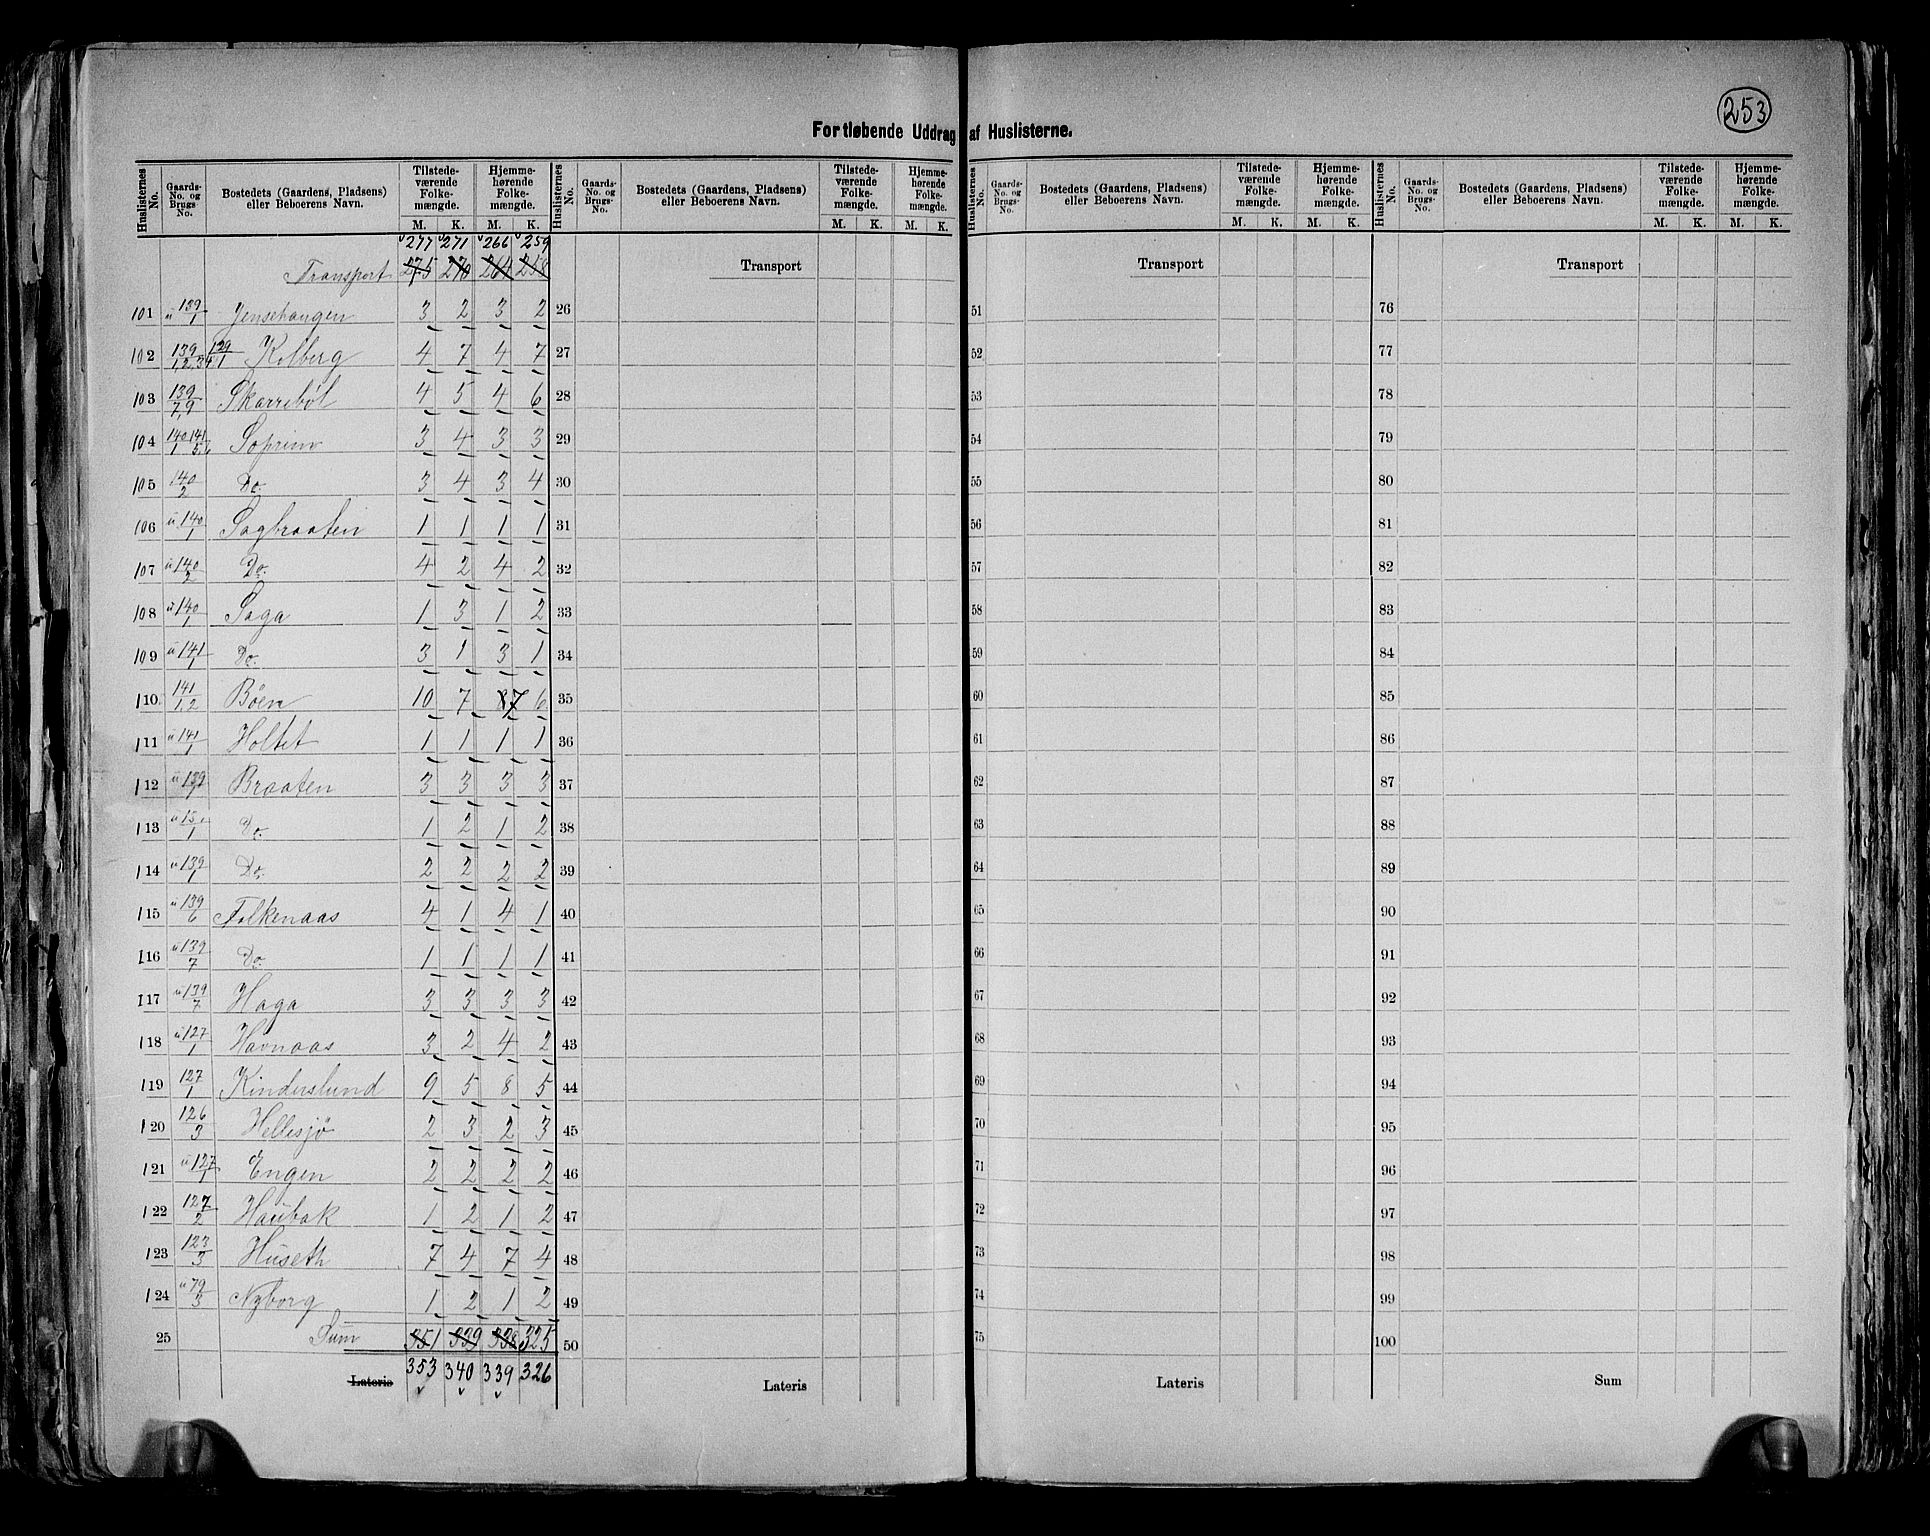 253
Fortløbende Uddrag af Huslisterne.
Huslisternes No. Gaards-No. og Brugs-No. Bostedets (Gaardens, Pladsens) eller Beboerens Navn. Tilstedeværende Folkemængde. M. K. Hjemmehørende Folkemængde. M. K.
Huslisternes No. Gaards-No. og Brugs-No. Bostedets (Gaardens, Pladsens) eller Beboerens Navn. Tilstedeværende Folkemængde. M. K. Hjemmehørende Folkemængde. M. K.
Huslisternes No. Gaards-No. og Brugs-No. Bostedets (Gaardens, Pladsens) eller Beboerens Navn. Tilstedeværende Folkemængde. M. K. Hjemmehørende Folkemængde. M. K.
Huslisternes No. Gaards-No. og Brugs-No. Bostedets (Gaardens, Pladsens) eller Beboerens Navn. Tilstedeværende Folkemængde. M. K. Hjemmehørende Folkemængde. M. K.
277 271 266 259
Transport 275 270 264 258 Transport Transport Transport
101 u 139/1 Jensehaugen 3 2 3 2 26 51 76
102 139/1,2,3,4 129/1 Kolberg 4 7 4 7 27 52 77
103 139/7,9 Skarrebøl 4 5 4 6 28 53 78
104 140/1 141/5,6 Soprim 3 4 3 3 29 54 79
105 140/2 Do. 3 4 3 4 30 55 80
106 u 140/1 Sagbraaten 1 1 1 1 31 56 81
107 u 140/2 Do. 4 2 4 2 32 57 82
108 u 140/1 Saga 1 3 1 2 33 58 83
109 u 141/1 Do. 3 1 3 1 34 59 84
110 141/1,2 Böen 10 7 8 7 6 35 60 85
111 u 141/1 Holtet 1 1 1 1 36 61 86
112 u 139/1 Braaten 3 3 3 3 37 62 87
113 Do. 1 2 1 2 38 63 88
114 u 139/1 Do. 2 2 2 2 39 64 89
115 u 139/6 Falkenaas 4 1 4 1 40 65 90
116 u 139/7 Do. 1 1 1 1 41 66 91
117 u 139/7 Haga 3 3 3 3 42 67 92
118 u 127/1 Havnaas 3 2 4 2 43 68 93
119 127/1 Kinderslund 9 5 8 5 44 69 94
120 126/3 Hellesjö 2 3 2 3 45 70 95
121 u 127/1 Engen 2 2 2 2 46 71 96
122 127/2 Haubak 1 2 1 2 47 72 97
123 123/3 Huseth 7 4 7 4 48 73 98
124 u 79/3 Nyborg 1 2 1 2 49 74 99
25 Sum 351 339 338 325 50 75 100
Lateris 353 340 339 326 Lateris Lateris Sum